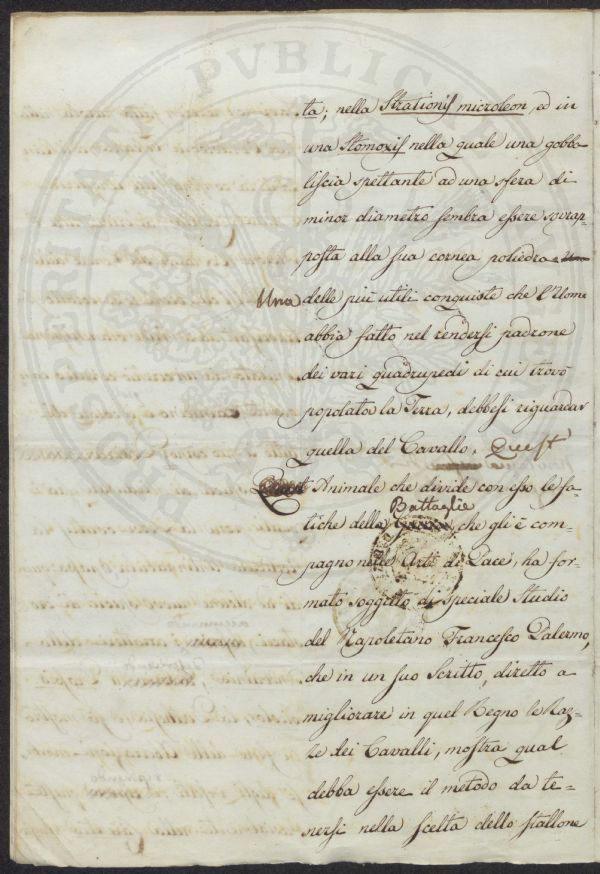 ta; nella Strationis microleon, ed in
una Stomoxis nella quale una gobba
liscia spettante ad una sfera di
minor diametro sembra essere sovrap-
posta alla sua cornea poliedra. Una
Una delle più utili conquiste che l'Uomo
abbia fatto nel rendersi padrone
dei vari quadrupedi di cui trovò
popolata la Terra, debbesi riguardar
quella del Cavallo. Quest'
Animale che divide con esso le fa-
Battaglie
tiche della che gli è com-
pagno nelle Arti di Pace, ha for-
mato soggetto di speciale Studio
del Napoletano Francesco Palermo,
che in un suo Scritto, diretto a
migliorare in quel Regno le Raz-
ze dei Cavalli, mostra qual
debba essere il metodo da te-
nersi nella scelta dello stallone